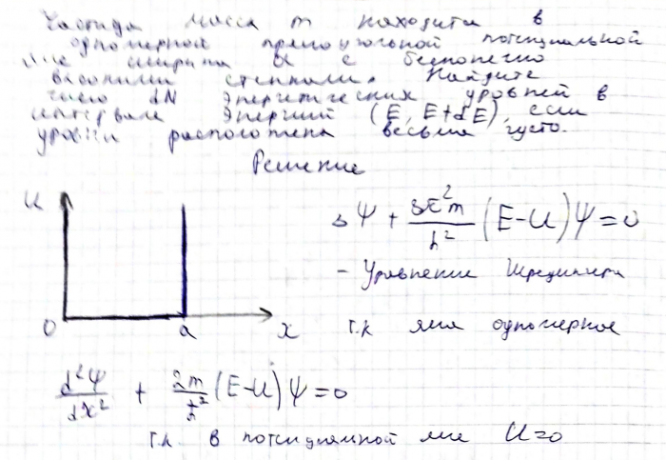 Частица масса m находится в
одномерной прямоугольной потенциальной
яме ширина a с бесконечно
высокими стенками. Найдите
число dN энергетических уровней в
интервале энергий (E, E+dE), если
уровни расположена весьма густо.
Решение
U
0 a x
ΔΨ + 8π²m/h² (E-U)Ψ=0
- Уравнение Шредингера
т.к яма одномерное
d²Ψ/dx² + 2m/ħ² (E-U)Ψ=0
т.к. в потенциальной яме U=0